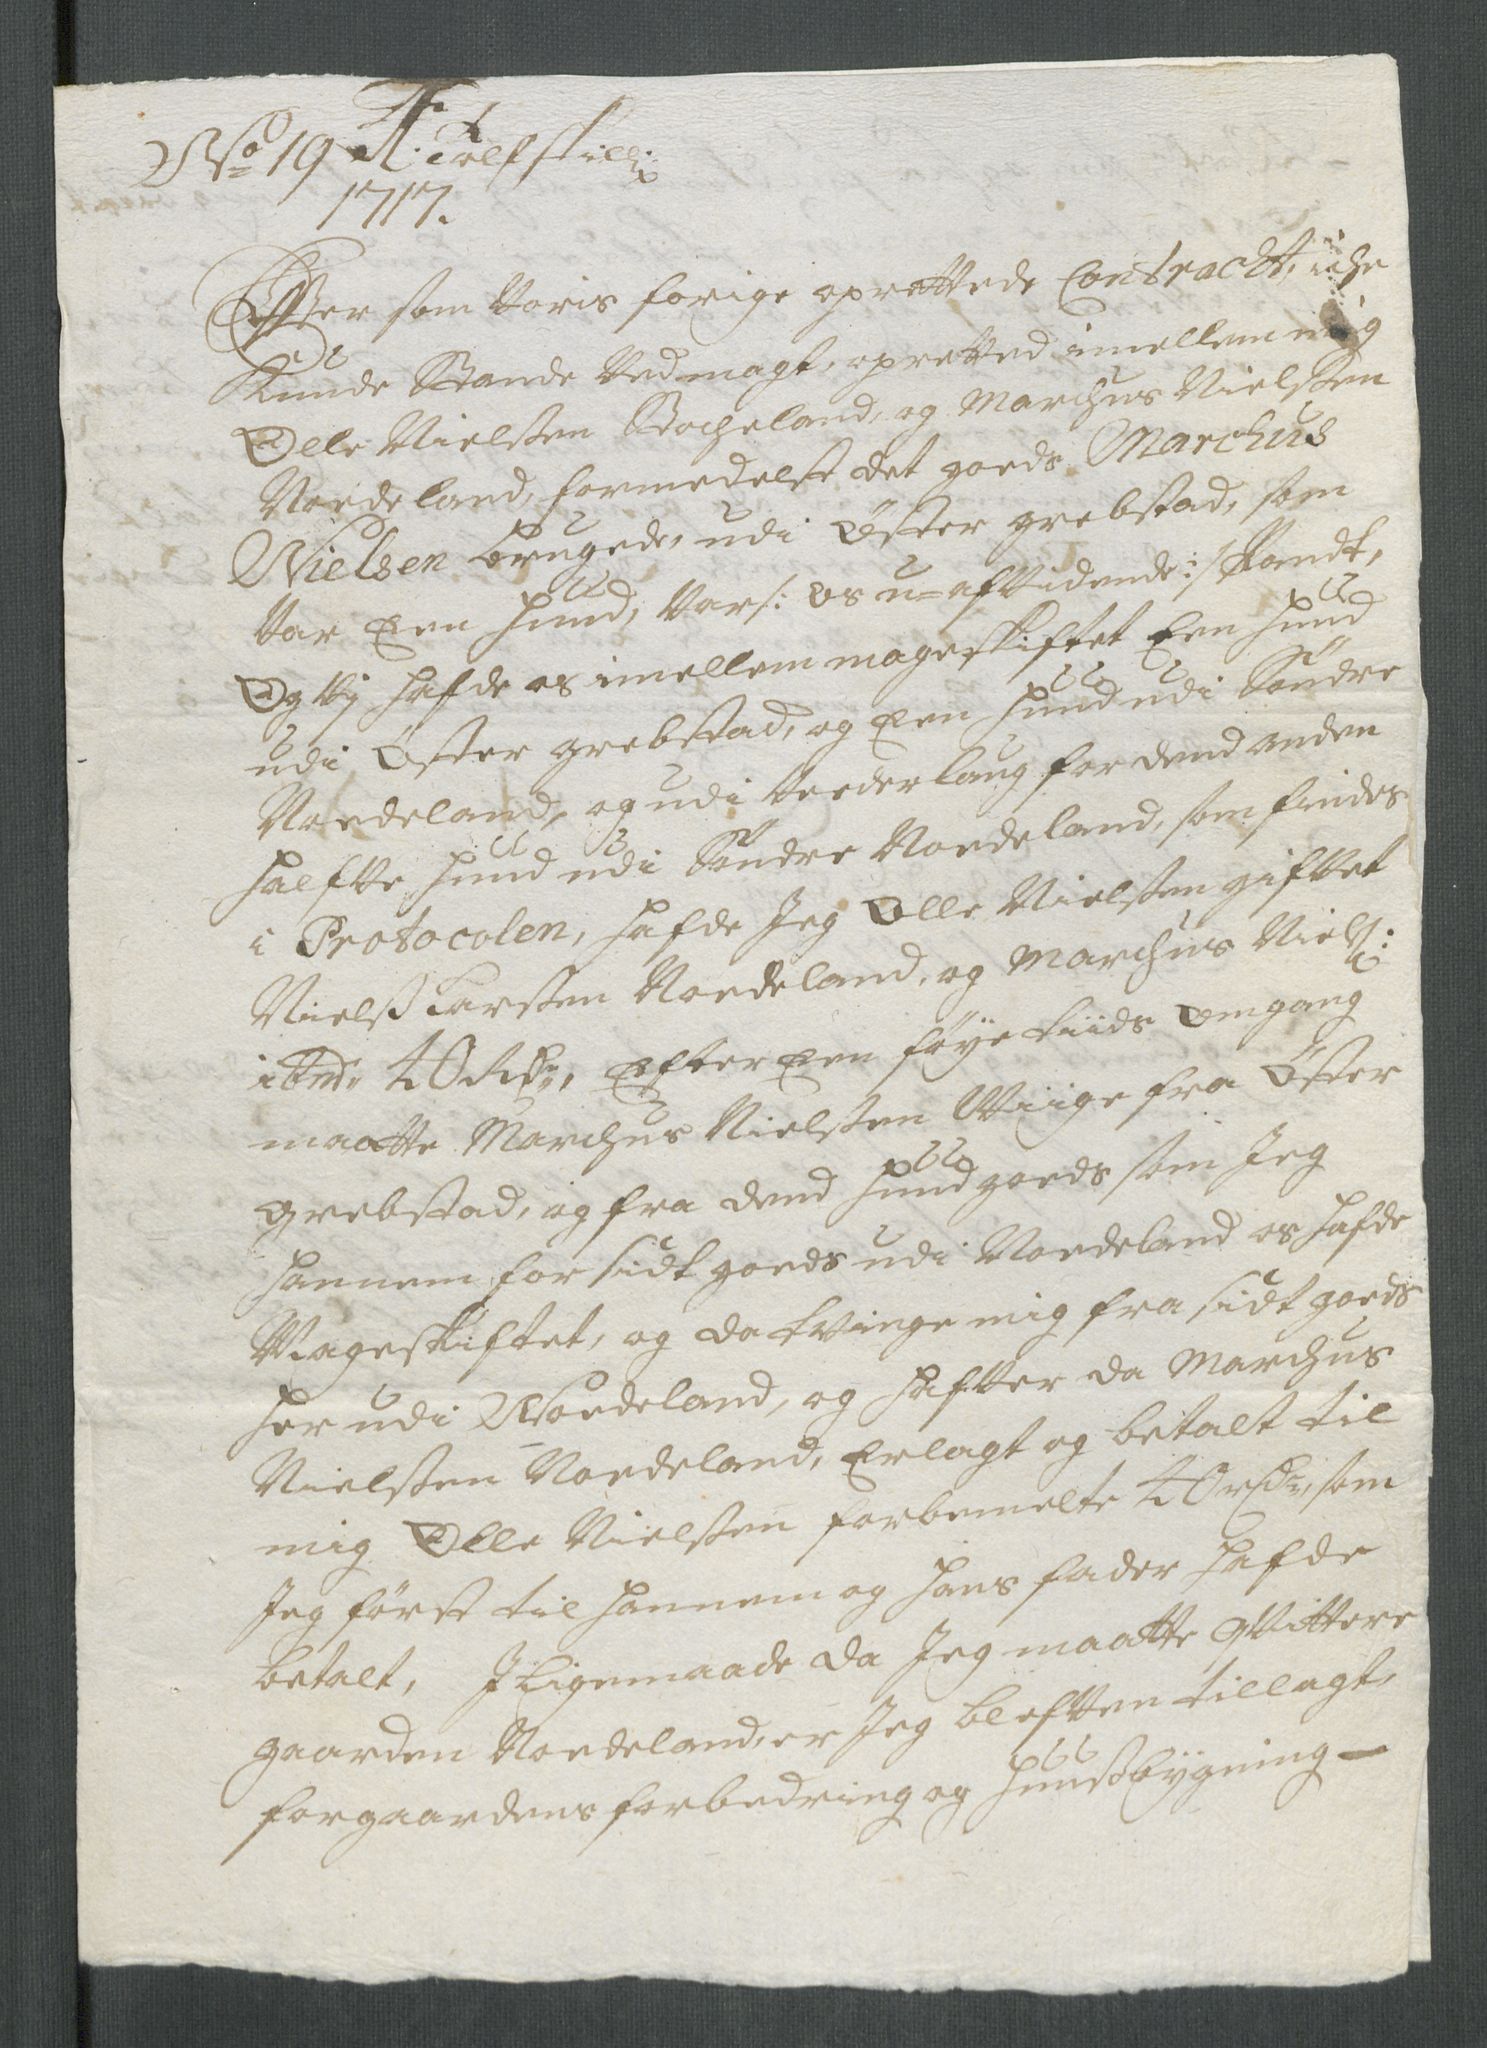 No 19 Tolf skill:
1717.
Efter som Voris forige oprettede Contracht, iche
Kunde Stande Ved magt, opretted imellem mig
Olle Nielsen Stocheland, og Marchus Nielsen
Nordeland, formedelst det goeds Marchus
Nielsen brugede, udi Øster Grebstad, som
Var Een Hud, Var /: os u=afvidende :/ Pandt,
Og Vj hafde os imellem mageskiftet Een Hud
udi Øster grebstad, og Een Hud udi Søndre
Nordeland, og udi Vederlaug for dend anden
halfve Hud udi Søndre Nordeland, som findes
i Protocolen, hafde Jeg Olle Nielsen gifvet
Niels Larsen Nordeland, og Marchus Niels:
ibm, 40 Rdr, Efter Een føye tiids omgang
maatte Marchus Nielsen Wiige fra Øster
grebstad, og fra dend Hud goeds som Jeg
hannem for sidt goeds udi Nordeland os hafde
Mageskiftet, og da tvinge mig fra sidt goeds
her udi Nordeland, og hafver da Marchus
Nielsen Nordeland, Erlagt og betalt til
mig Olle Nielsen forbemelte 40 rdr, som
Jeg først til hannem og hans fader hafde
betalt, J Ligemaade da Jeg maatte qvittere
gaarden Nordeland, er Jeg blefven tillagt,
for gaardens forbedring og Huusbygning —